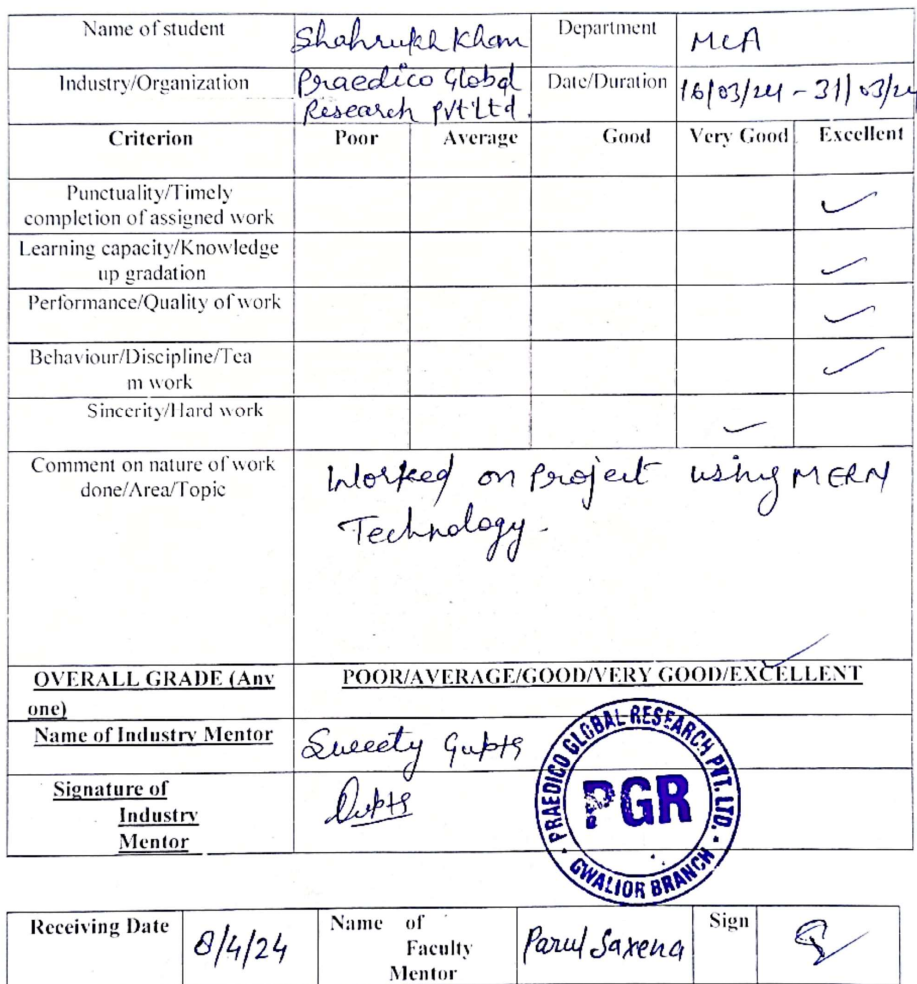 Name of student Shahrukh Khan Department MCA
Industry/Organization Praedico Global Date/Duration 16/03/24 - 31/03/24
Research Pvt Ltd.
Criterion Poor Average Good Very Good Excellent
Punctuality/Timely ✓
completion of assigned work
Learning capacity/Knowledge ✓
up gradation
Performance/Quality of work ✓
Behaviour/Discipline/Tea ✓
m work
Sincerity/Hard work ✓
Comment on nature of work Worked on Project using MERN
done/Area/Topic Technology.
OVERALL GRADE (Any POOR/AVERAGE/GOOD/VERY GOOD/EXCELLENT ✓
one)
Name of Industry Mentor Sweety Gupta
Signature of Gupta
Industry
Mentor
PRAEDICO GLOBAL RESEARCH PVT. LTD.
PGR
GWALIOR BRANCH
Receiving Date 8/4/24 Name of Parul Saxena Sign
Faculty
Mentor